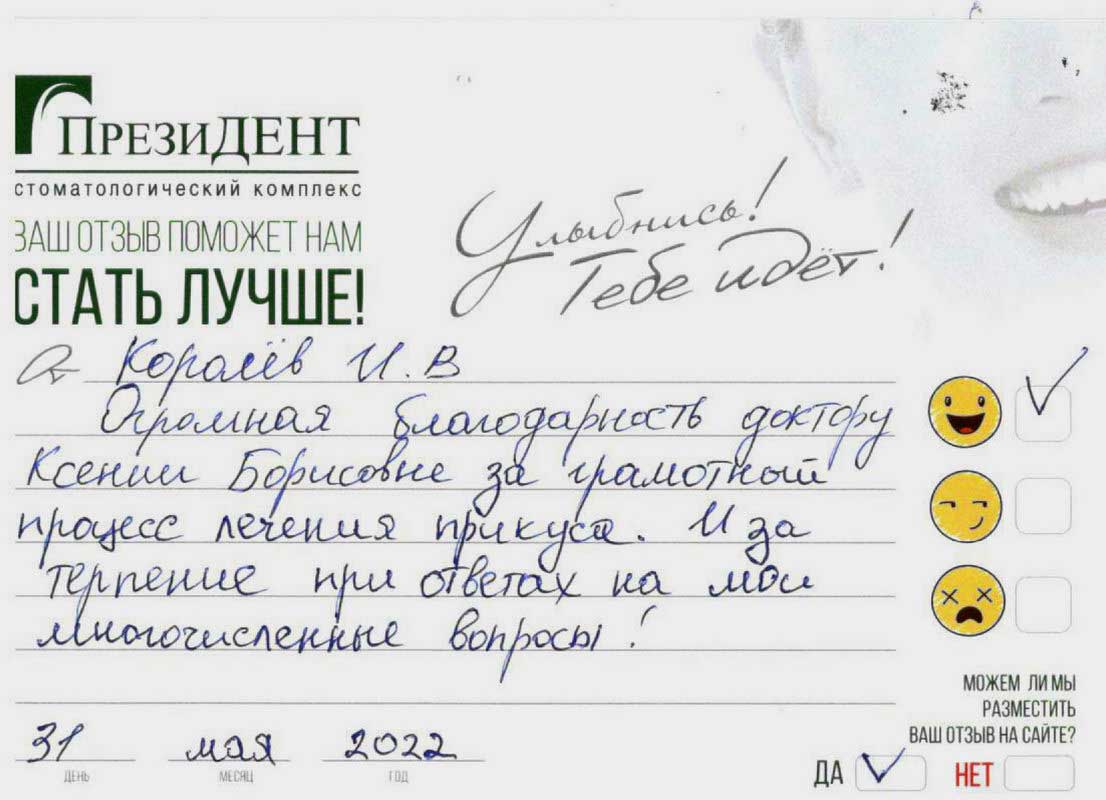 ПРЕЗИДЕНТ
СТОМАТОЛОГИЧЕСКИЙ КОМПЛЕКС
ВАШ ОТЗЫВ ПОМОЖЕТ НАМ
СТАТЬ ЛУЧШЕ!
Улыбнись!
Тебе идёт!
От Королёв И.В
Огромная благодарность доктору
Ксении Борисовне за грамотный
процесс лечения прикуса. И за
терпение при ответах на мои
многочисленные вопросы!
31 мая 2022
ДЕНЬ МЕСЯЦ ГОД
МОЖЕМ ЛИ МЫ
РАЗМЕСТИТЬ
ВАШ ОТЗЫВ НА САЙТЕ?
ДА НЕТ